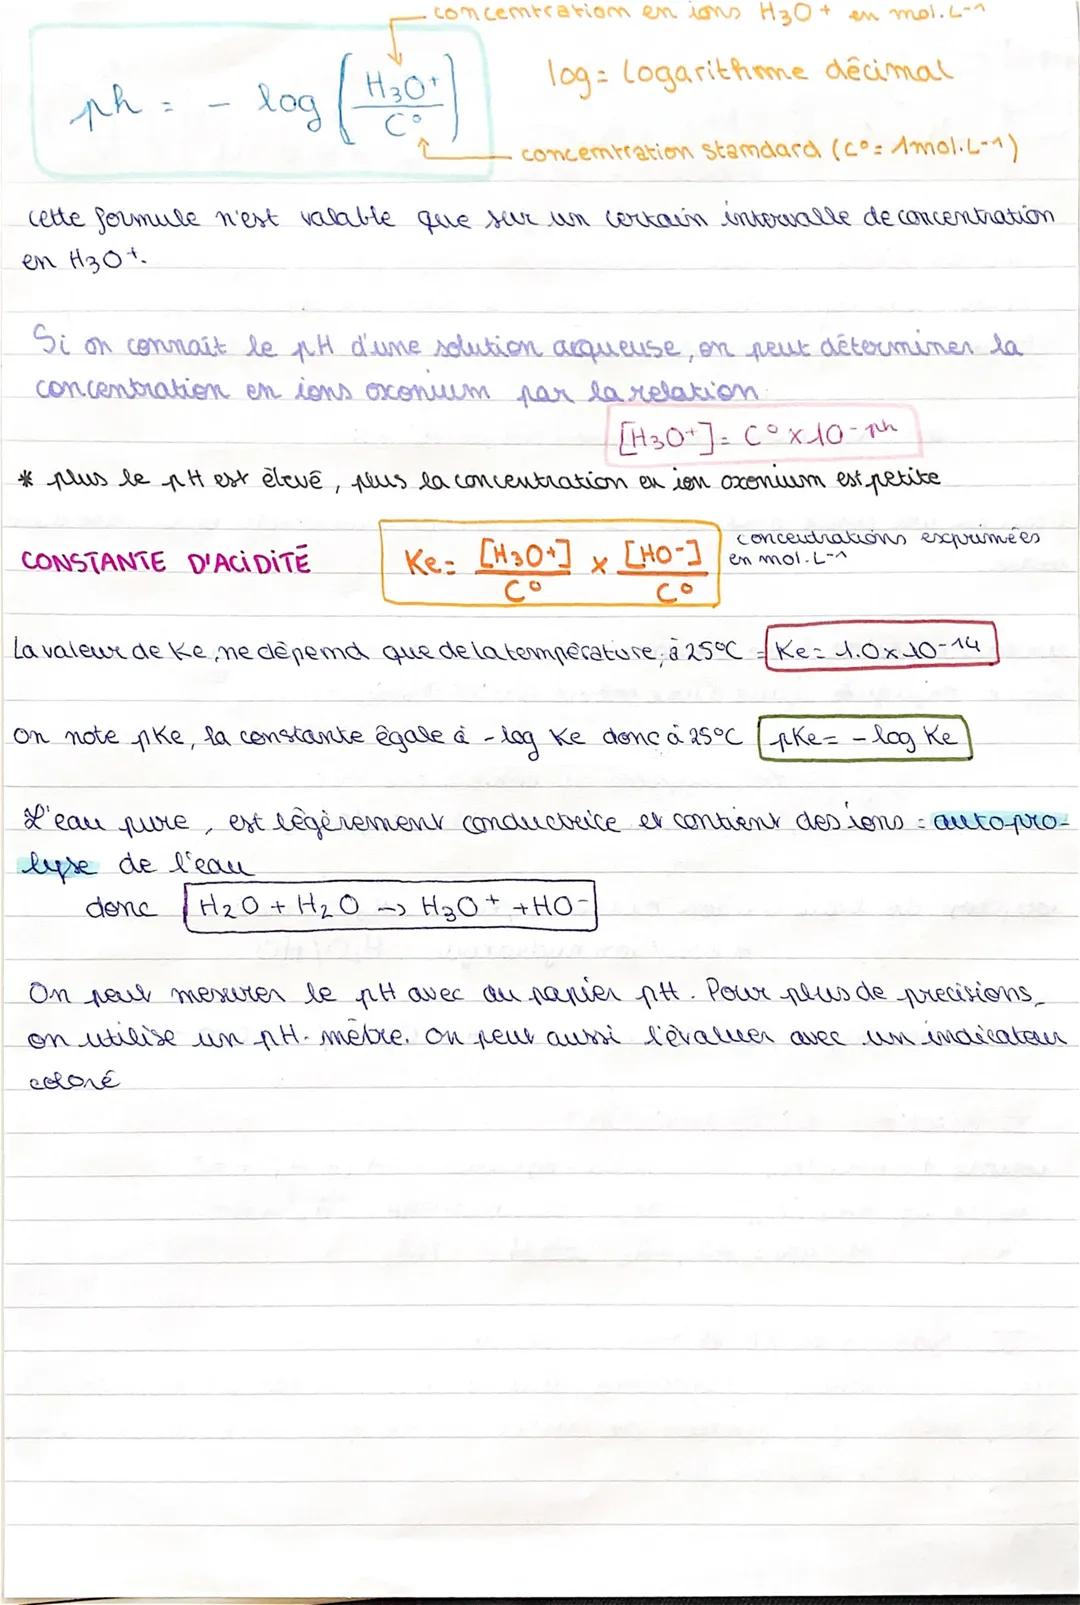 concentration en ions H3O+ en mol.L-1
ph = - log (H3O+ / C°)
log = logarithme décimal
concentration standard (C° = 1mol.L-1)
cette formule n'est valable que sur un certain intervalle de concentration
en H3O+.
Si on connaît le pH d'une solution acqueuse, on peut déterminer la
concentration en ions oxonium par la relation:
[H3O+] = C° x 10-ph
* plus le pH est élevé, plus la concentration en ion oxonium est petite
CONSTANTE D'ACIDITÉ
Ke = [H3O+] / C° x [HO-] / C°
concentrations exprimées
en mol.L-1
La valeur de Ke, ne dépend que de la température, à 25°C = Ke = 1.0 x 10-14
On note pKe, la constante égale à - log Ke donc à 25°C pKe = - log Ke
L'eau pure, est légèrement conductrice et contient des ions = autopro-
lyse de l'eau
donc H2O + H2O -> H3O+ + HO-
On peut mesurer le pH avec du papier pH. Pour plus de precisions,
on utilise un pH-mètre. On peut aussi l'évaluer avec un indicateur
coloré